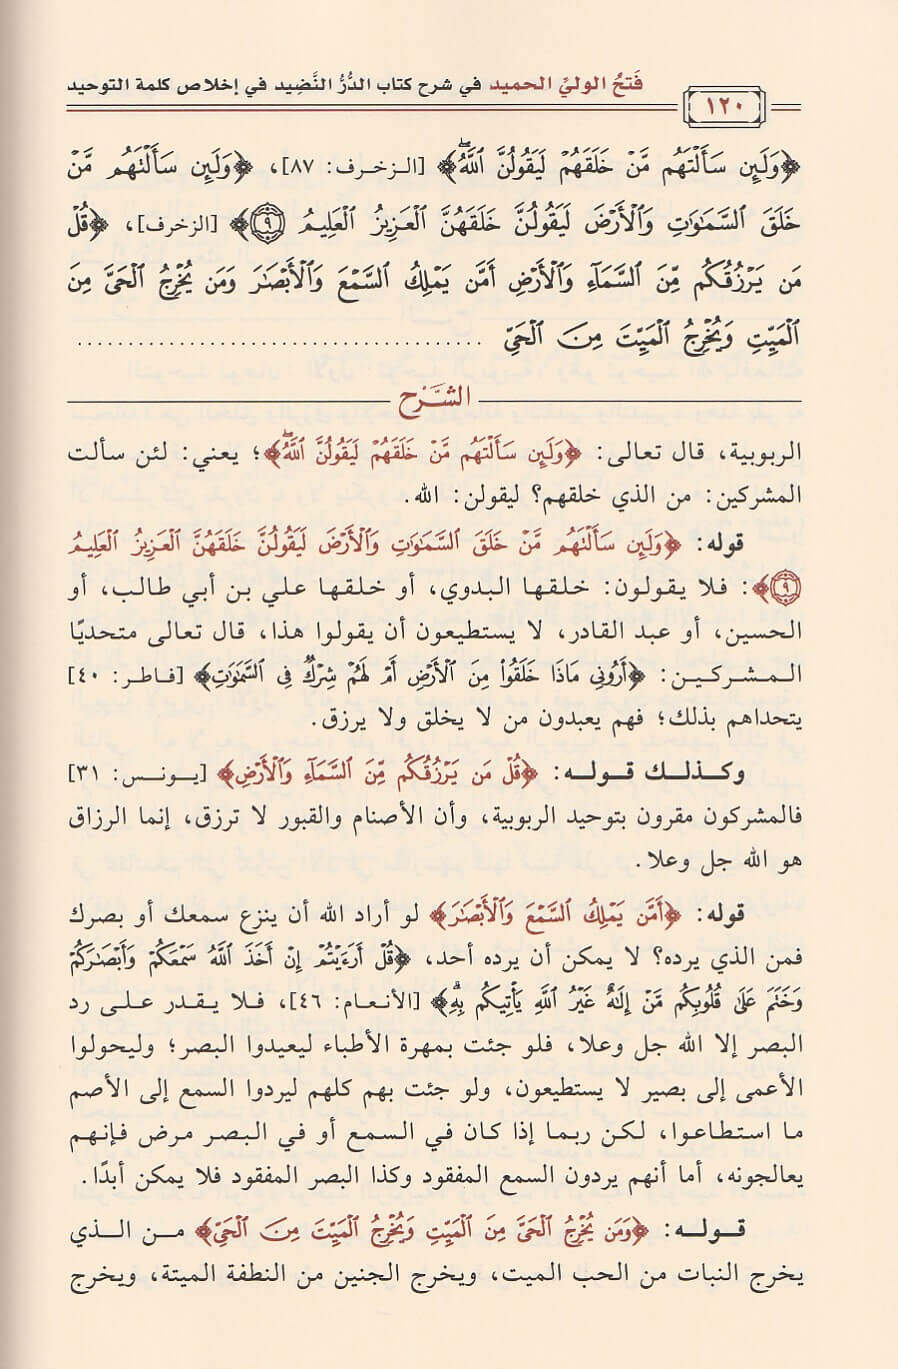 فَتحُ الوليِّ الحميد في شرح كتاب الدُّرُّ النَّضِيد في إخلاص كلمة التوحيد
١٢٠
﴿وَلَئِن سَأَلْتَهُم مَّنْ خَلَقَهُمْ لَيَقُولُنَّ ٱللَّهُۖ﴾ [الزخرف: ٨٧]، ﴿وَلَئِن سَأَلْتَهُم مَّنْ
خَلَقَ ٱلسَّمَٰوَٰتِ وَٱلْأَرْضَ لَيَقُولُنَّ خَلَقَهُنَّ ٱلْعَزِيزُ ٱلْعَلِيمُ ٩﴾ [الزخرف]، ﴿قُلْ
مَن يَرْزُقُكُم مِّنَ ٱلسَّمَآءِ وَٱلْأَرْضِ أَمَّن يَمْلِكُ ٱلسَّمْعَ وَٱلْأَبْصَٰرَ وَمَن يُخْرِجُ ٱلْحَىَّ مِنَ
ٱلْمَيِّتِ وَيُخْرِجُ ٱلْمَيِّتَ مِنَ ٱلْحَىِّ ......................................
الشَّرْح
الربوبية، قال تعالى: ﴿وَلَئِن سَأَلْتَهُم مَّنْ خَلَقَهُمْ لَيَقُولُنَّ ٱللَّهُۖ﴾؛ يعني: لئن سألت
المشركين: من الذي خلقهم؟ ليقولن: الله.
قوله: ﴿وَلَئِن سَأَلْتَهُم مَّنْ خَلَقَ ٱلسَّمَٰوَٰتِ وَٱلْأَرْضَ لَيَقُولُنَّ خَلَقَهُنَّ ٱلْعَزِيزُ ٱلْعَلِيمُ
٩﴾: فلا يقولون: خلقها البدوي، أو خلقها علي بن أبي طالب، أو
الحسين، أو عبد القادر، لا يستطيعون أن يقولوا هذا، قال تعالى متحديًا
المشركين: ﴿أَرُونِى مَاذَا خَلَقُوا۟ مِنَ ٱلْأَرْضِ أَمْ لَهُمْ شِرْكٌ فِى ٱلسَّمَٰوَٰتِ﴾ [فاطر: ٤٠]
يتحداهم بذلك؛ فهم يعبدون من لا يخلق ولا يرزق.
وكذلك قوله: ﴿قُلْ مَن يَرْزُقُكُم مِّنَ ٱلسَّمَآءِ وَٱلْأَرْضِ﴾ [يونس: ٣١]
فالمشركون مقرون بتوحيد الربوبية، وأن الأصنام والقبور لا ترزق، إنما الرزاق
هو الله جل وعلا.
قوله: ﴿أَمَّن يَمْلِكُ ٱلسَّمْعَ وَٱلْأَبْصَٰرَ﴾ لو أراد الله أن ينزع سمعك أو بصرك
فمن الذي يرده؟ لا يمكن أن يرده أحد، ﴿قُلْ أَرَءَيْتُمْ إِنْ أَخَذَ ٱللَّهُ سَمْعَكُمْ وَأَبْصَٰرَكُمْ
وَخَتَمَ عَلَىٰ قُلُوبِكُم مَّنْ إِلَٰهٌ غَيْرُ ٱللَّهِ يَأْتِيكُم بِهِۗ﴾ [الأنعام: ٤٦]، فلا يقدر على رد
البصر إلا الله جل وعلا، فلو جئت بمهرة الأطباء ليعيدوا البصر؛ وليحولوا
الأعمى إلى بصير لا يستطيعون، ولو جئت بهم كلهم ليردوا السمع إلى الأصم
ما استطاعوا، لكن ربما إذا كان في السمع أو في البصر مرض فإنهم
يعالجونه، أما أنهم يردون السمع المفقود وكذا البصر المفقود فلا يمكن أبدًا.
قوله: ﴿وَمَن يُخْرِجُ ٱلْحَىَّ مِنَ ٱلْمَيِّتِ وَيُخْرِجُ ٱلْمَيِّتَ مِنَ ٱلْحَىِّ﴾ من الذي
يخرج النبات من الحب الميت، ويخرج الجنين من النطفة الميتة، ويخرج